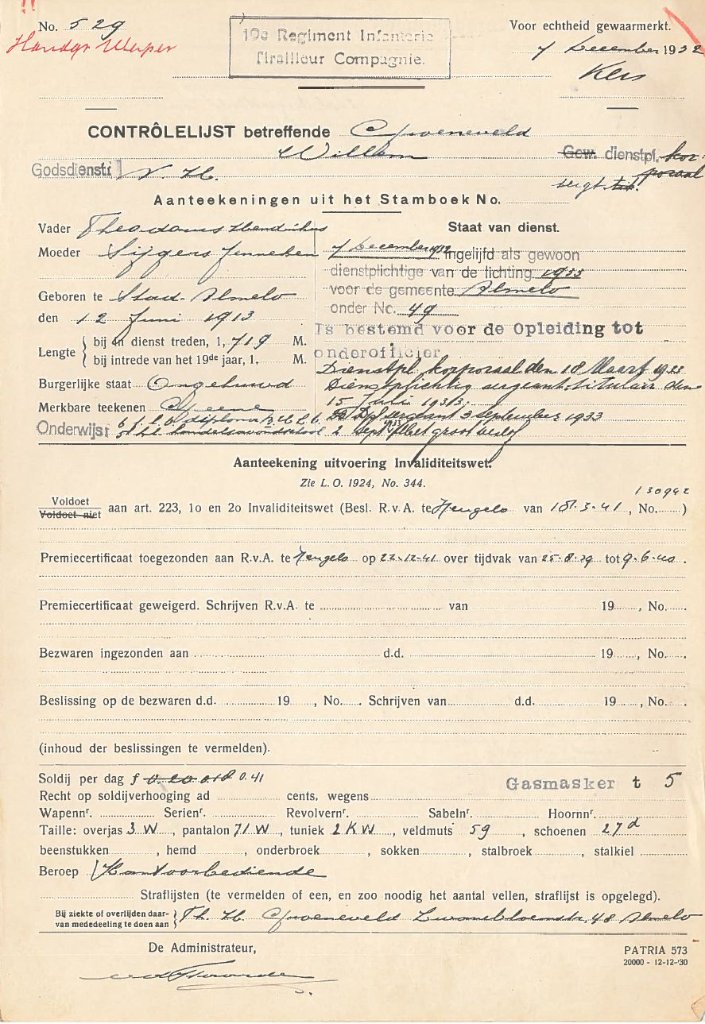 No. 529
19e Regiment Infanterie
Tirailleur Compagnie.
Voor echtheid gewaarmerkt.
7 December 1932
CONTRÔLELIJST betreffende Groeneveld
Willem
Gew. dienstpl. korporaal
Godsdienst: N. H.
Aanteekeningen uit het Stamboek No.
Vader Theodorus Hendrikus
Moeder Sijgers Jenneken
Geboren te Stad-Almelo
den 12 Juni 1913
Lengte { bij in dienst treden, 1, 719 M.
bij intrede van het 19de jaar, 1, M.
Burgerlijke staat Ongehuwd
Merkbare teekenen Geene
Onderwijs:
Staat van dienst.
7 December 1932 ingelijfd als gewoon
dienstplichtige van de lichting 1933
voor de gemeente Almelo
onder No. 49
Is bestemd voor de Opleiding tot
onderofficier
Dienstpl korporaal den 18 Maart 1933
Dienstplichtig sergeant-titulair den
15 Juli 1933.
Dpl sergeant 3 september 1933
2 sept met groot verlof
Aanteekening uitvoering Invaliditeitswet.
Zie L. O. 1924, No. 344.
130942
Voldoet
Voldoet niet
aan art. 223, 1o en 2o Invaliditeitswet (Besl. R. v. A. te Hengelo van 18.3.41, No. )
Premiecertificaat toegezonden aan R. v. A. te Hengelo op 22-12-41 over tijdvak van 25.8.39 tot 9.6.40.
Premiecertificaat geweigerd. Schrijven R. v. A. te van 19 , No.
Bezwaren ingezonden aan d.d. 19 , No.
Beslissing op de bezwaren d.d. 19 , No. Schrijven van d.d. 19
(inhoud der beslissingen te vermelden).
Soldij per dag f 0.20 0.18 0.41
Gasmasker t 5
Recht op soldijverhooging ad cents, wegens
Wapennr. Serienr. Revolvernr. Sabelnr. Hoornnr.
Taille: overjas 3 W, pantalon 71 W, tuniek 2 KW, veldmuts 59, schoenen 27d
beenstukken , hemd , onderbroek , sokken , stalbroek , stalkiel
Beroep Kantoorbediende
Straflijsten (te vermelden of een, en zoo noodig het aantal vellen, straflijst is opgelegd).
Bij ziekte of overlijden daar-
van mededeeling te doen aan } Th. H. Groeneveld 48 Almelo
De Administrateur,
PATRIA 573
20000 - 12-12-'30